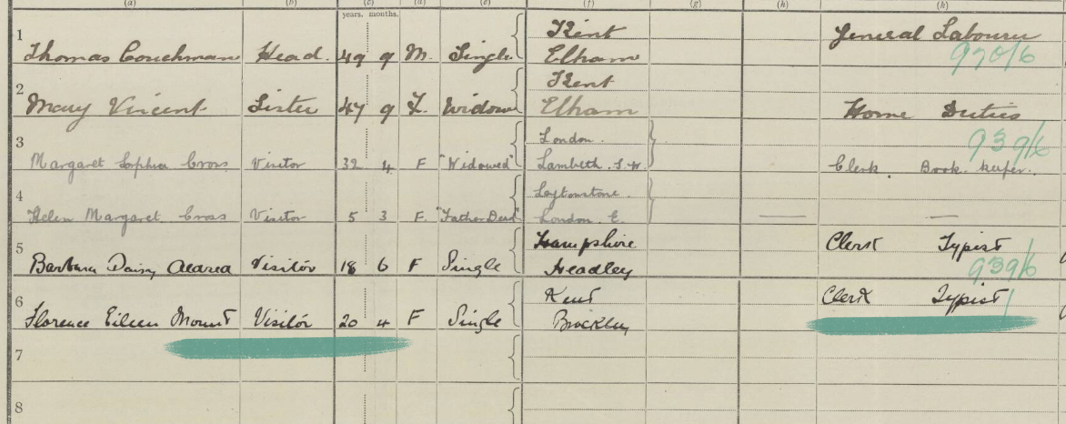 (a) (b) (c) (d) (e) (f) (g) (h)
years. months.
1 Kent General Labourer
Thomas Couchman Head. 49 9 M. Single Elham 970/6
2 Kent
Mary Vincent Sister 47 9 F. Widow Elham Home Duties
3 London. 939/6
Margaret Sophia Cross Visitor 32 4 F "Widowed" Lambeth. S.W. Clerk. Book keeper.
4 Leytonstone.
Helen Margaret Cross Visitor 5 3 F. "Father Dead" London. E. — —
5 Hampshire Clerk Typist
Barbara Daisy Visitor 18 6 F Single Headley 939/6
6 Kent Clerk Typist
Florence Eileen Mount Visitor 20 4 F Single Brockley
7
8